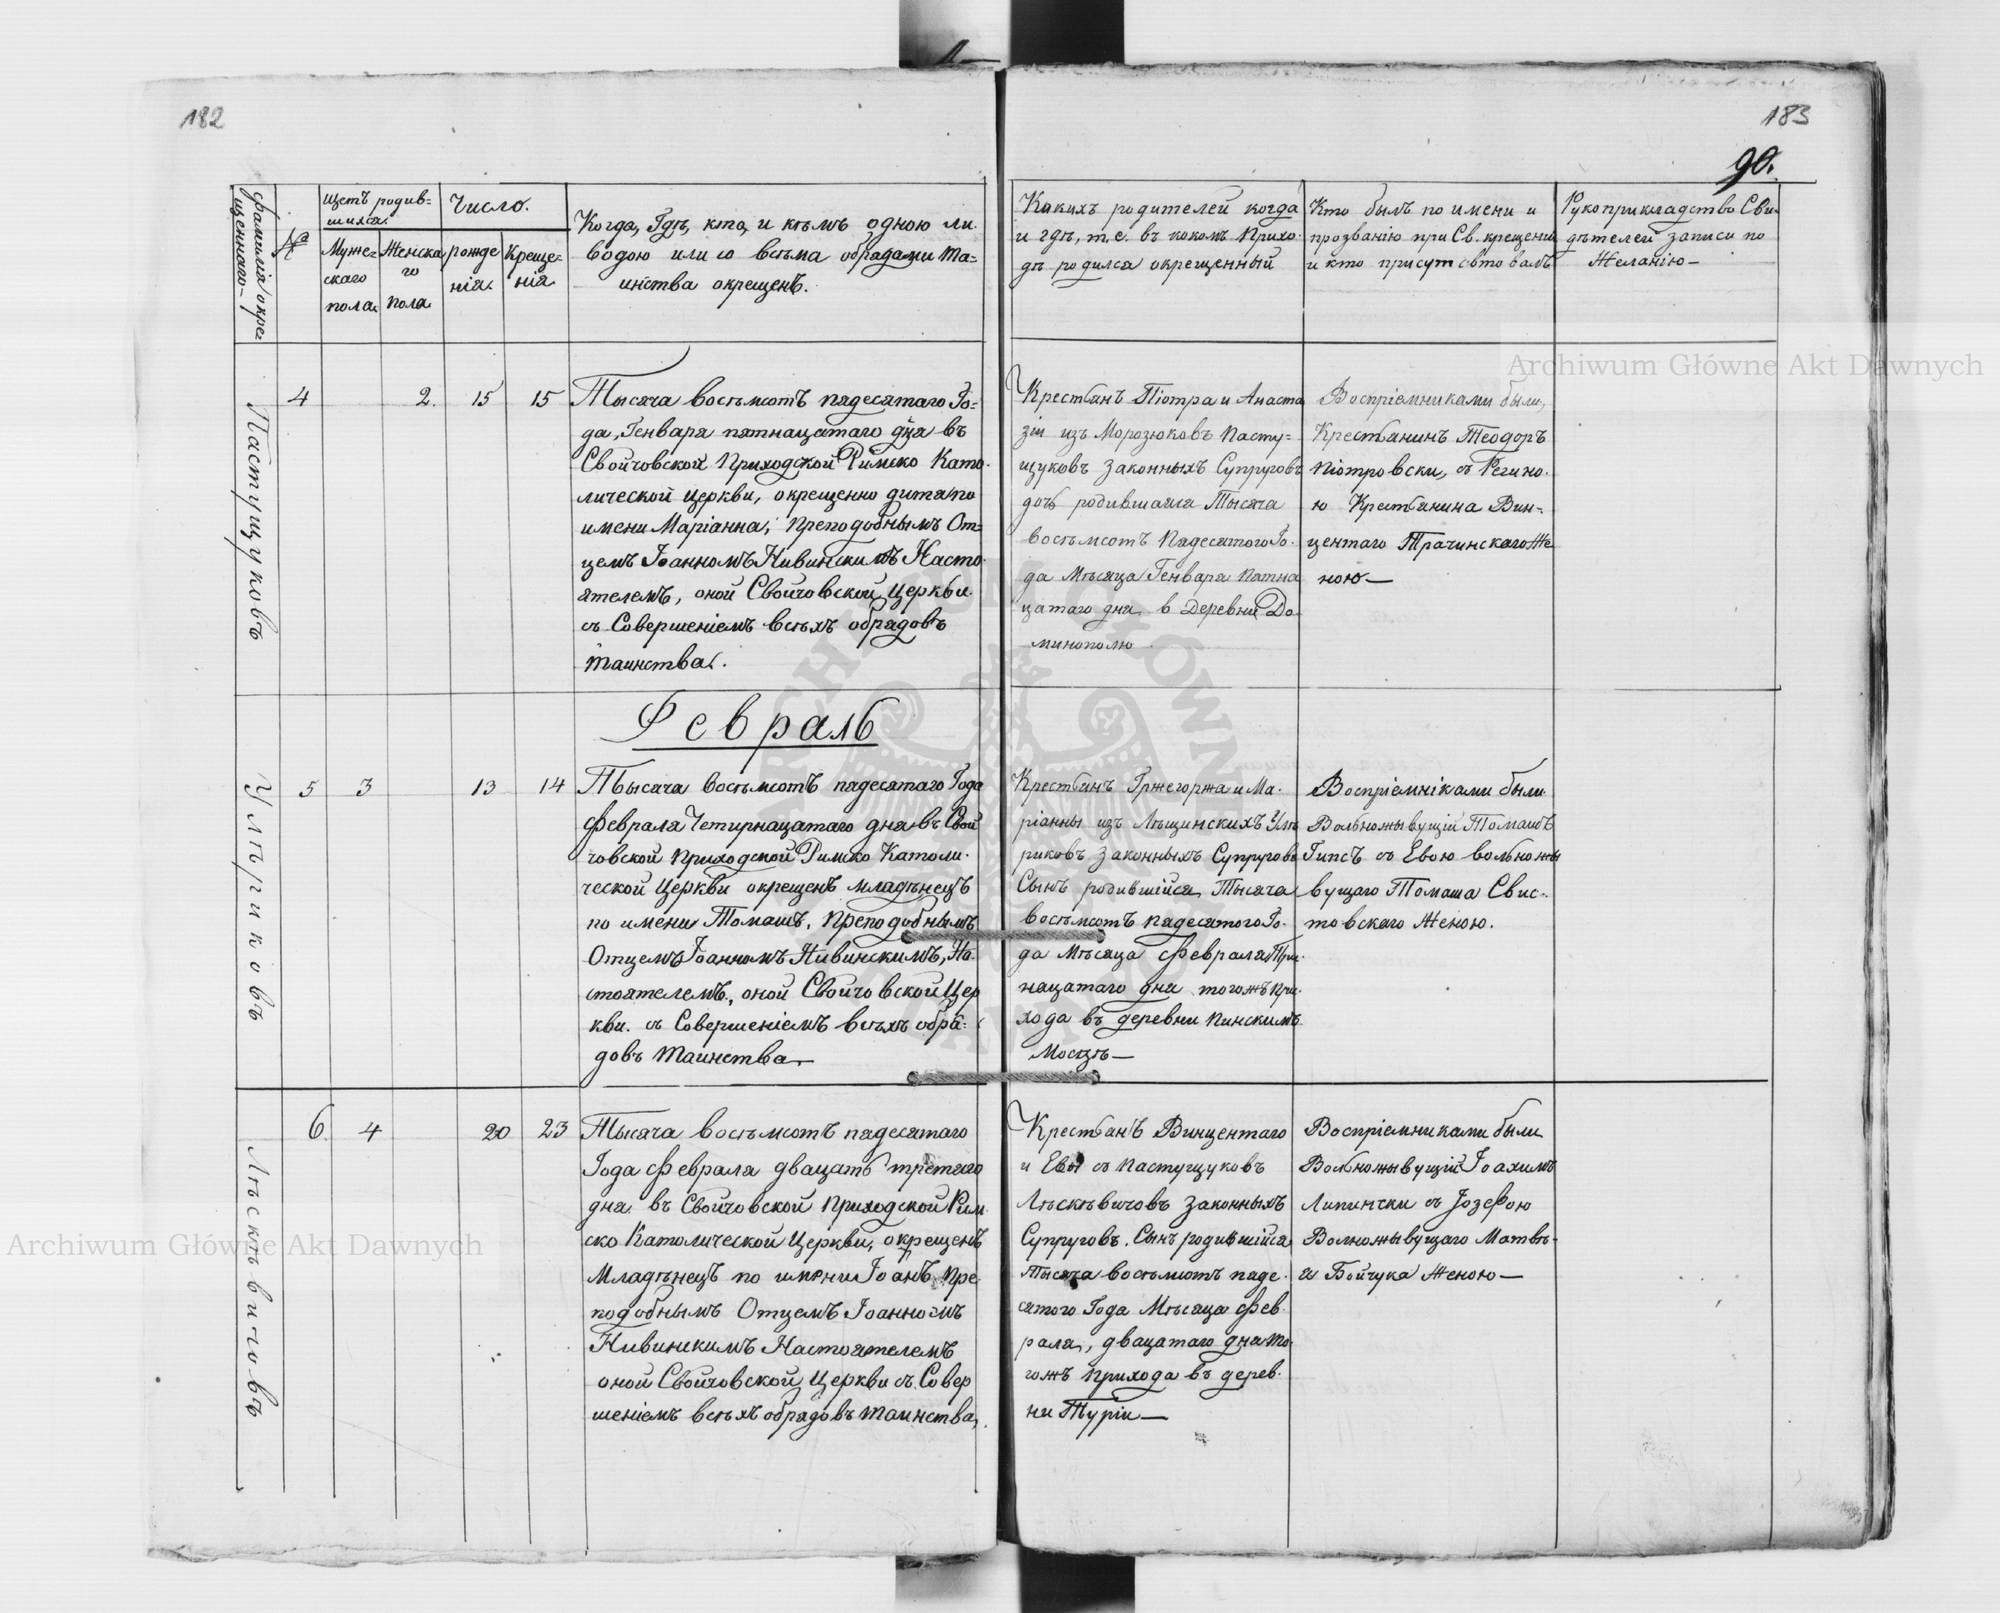 182
183
90.
Фамилія окре=
щеннаго
№
Щетъ родив=
шихся.
Муже=
скаго
пола.
Женска
го
пола
Число.
рожде
нія.
Креще=
нія
Когда, Гдѣ, кто, и кѣмъ одною ли
водою или со всѣма обрядами Та=
инства окрещенъ.
Какихъ родителей когда
и гдѣ, т.е. въ какомъ Прихо-
дѣ родился окрещенный
Кто былъ по имени и
прозванію при Св. крещеніи
и кто присутствовалъ
Рукоприкладство Сви-
дѣтелей записи по
Желанію—
Archiwum Główne Akt Dawnych
Пастущуковъ
4
2.
15
15
Тысяча восѣмсотъ пядесятаго Го=
да, Генваря пятнацатаго дня въ
Свойчовской Приходской Римско Като-
лической Церкви, окрещенно дитя по
имени Маріанна, Преподобнымъ От=
цемъ Іоанномъ Нивинскимъ Насто-
ятелемъ, оной Свойчовской Церкви
съ Совершеніемъ всѣхъ обрядовъ
таинства.
Крестьянъ Піотра и Анаста
зіи изъ Морозюковъ Пасту=
щуковъ Законныхъ Супруговъ
дочь родившаяся Тысяча
восѣмсотъ Пядесятого Го-
да Мѣсяца Генваря Пятна
цатаго дня в Деревни До-
минополю
Воспріемниками были,
Крестьянинъ Теодоръ
Піотровски, съ Регино-
ю Крестьянина Вин=
центаго Трачинскаго Же
ною—
Февраль
Улѣриковъ
5
3
13
14
Тысяча восѣмсотъ пядесятаго Года
Февраля Четирнацатаго дня въ Свой
човской Приходской Римско Католи-
ческой Церкви окрещенъ младѣнецъ
по имени Томашъ, Преподобнымъ
Отцемъ Іоанномъ Нивинскимъ, На-
стоятелемъ, оной Свойчовской Цер
кви. съ Совершеніемъ всѣхъ обря=
довъ таинства—
Крестьянъ Гржегоржа и Ма-
ріанны изъ Лѣщинскихъ Улѣ
риковъ Законныхъ Супруговъ
Сынъ родившійся Тысяча
восѣмсотъ пядесятого Го-
да Мѣсяца Февраля Три-
нацатаго дня тогожъ При-
хода въ деревни Пинскимъ
Мосцѣ—
Воспріемніками были
Вольножывущій Томашъ
Гипсъ съ Евою вольножы
вущаго Томаша Свис-
товскаго Женою.
Лѣскѣвичовъ
6.
4
20
23
Тысяча восѣмсотъ пядесятаго
Года Февраля двацать третяго
дня въ Свойчовской Приходской Рим
ско Католической Церкви, окрещенъ
Младѣнецъ по имени Іоанъ, Пре-
подобнымъ Отцемъ Іоанномъ
Нивинскимъ Настоятелемъ
оной Свойчовской Церкви съ Совер
шеніемъ всѣхъ обрядовъ таинства,
Крестьянъ Винцентаго
и Евы съ Пастущуковъ
Лѣскѣвичовъ Законныхъ
Супруговъ, Сынъ родившійся
Тысяча восѣмсотъ пяде-
сятого Года Мѣсяца Фев-
раля, двацатаго дня то-
гожъ Прихода въ дерев-
ни Туріи—
Воспріемниками были
Вольножывущій Іоахимъ
Липински съ Іозефою
Волножывущаго Матвѣ-
я Бойчука Женою—
Archiwum Główne Akt Dawnych